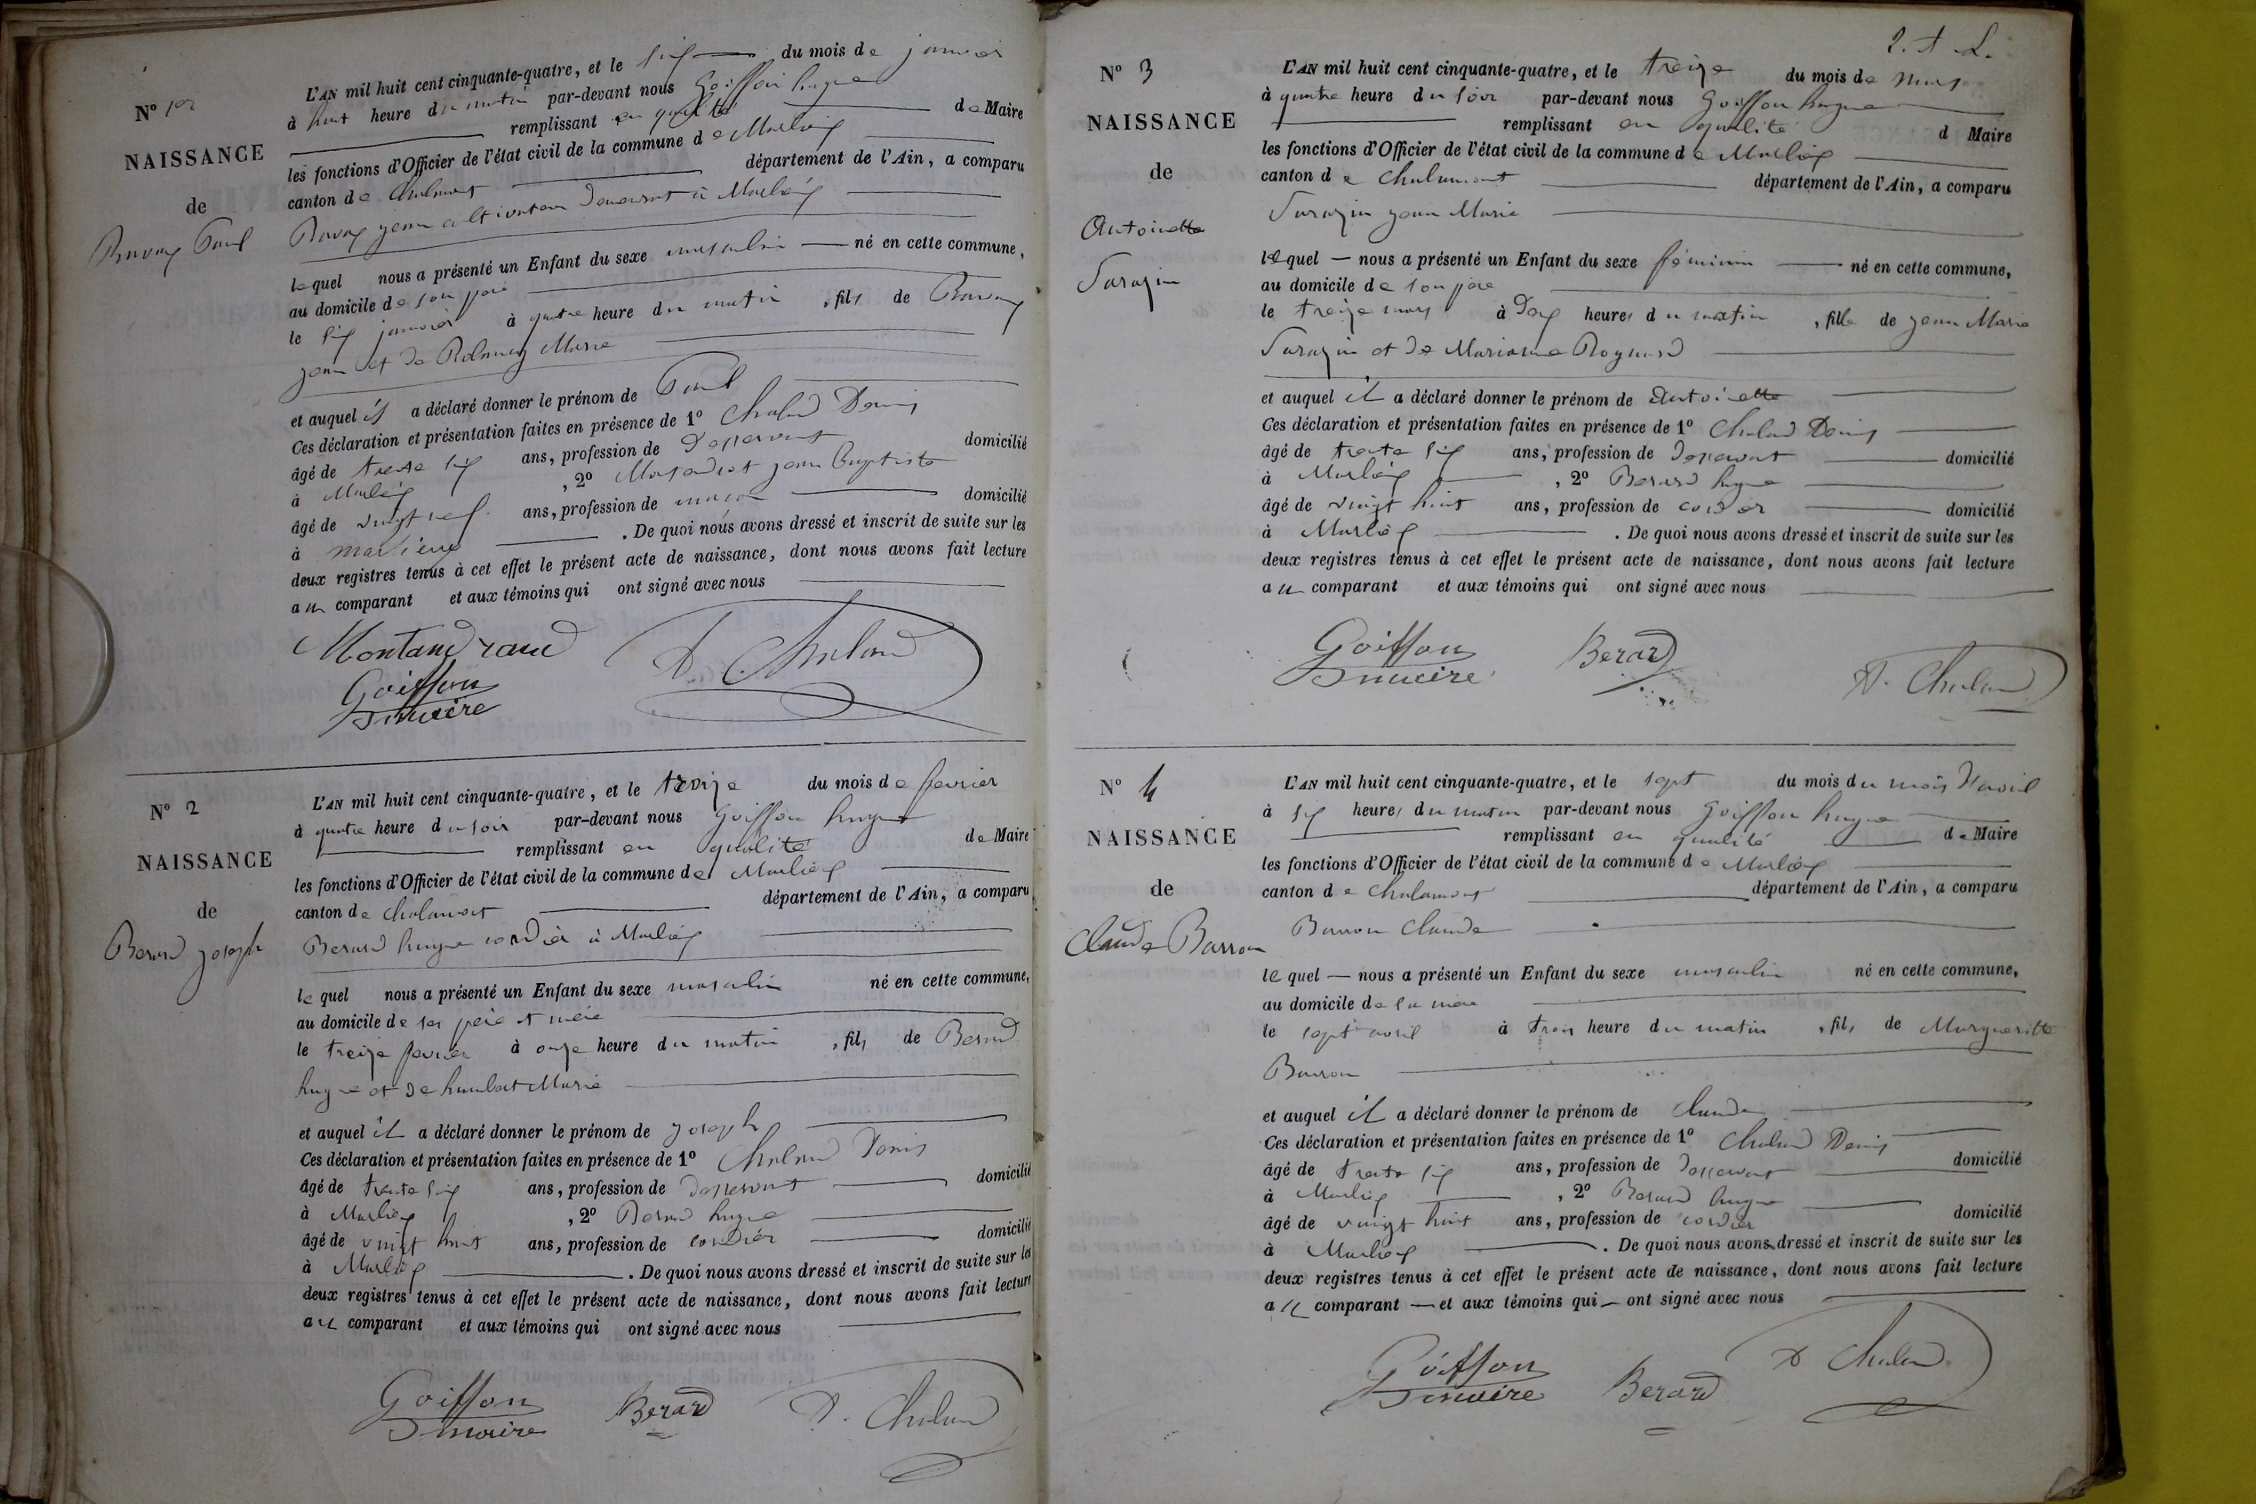 N° 1er
NAISSANCE
de
Ravay Paul
L'AN mil huit cent cinquante-quatre, et le six du mois de janvier
à huit heure du matin par-devant nous Goiffon hugue
remplissant en qualité de Maire
les fonctions d'Officier de l'état civil de la commune de Marlieux
canton de Chalamont département de l'Ain, a comparu
Ravay jean cultivateur demeurant à Marlieux
lequel nous a présenté un Enfant du sexe masculin né en cette commune,
au domicile de son père
le six janvier à quatre heure du matin, fils de Ravay
jean et de Marie
et auquel il a déclaré donner le prénom de Paul
Ces déclaration et présentation faites en présence de 1° Chaland Denis
âgé de trente six ans, profession de desservant domicilié
à Marlieux, 2° jean Baptiste
âgé de vingt neuf ans, profession de maçon domicilié
à marlieux. De quoi nous avons dressé et inscrit de suite sur les
deux registres tenus à cet effet le présent acte de naissance, dont nous avons fait lecture
au comparant et aux témoins qui ont signé avec nous
D. Chaland
Goiffon
maire
N° 2
NAISSANCE
de
Berard joseph
L'AN mil huit cent cinquante-quatre, et le treize du mois de fevrier
à quatre heure du soir par-devant nous Goiffon hugue
remplissant en qualité de Maire
les fonctions d'Officier de l'état civil de la commune de Marlieux
canton de Chalamont département de l'Ain, a comparu
Berard hugue cordier à Marlieux
lequel nous a présenté un Enfant du sexe masculin né en cette commune,
au domicile de ses père et mère
le treize fevrier à onze heure du matin, fils de Berard
hugue et de humbert Marie
et auquel il a déclaré donner le prénom de joseph
Ces déclaration et présentation faites en présence de 1° Chaland Denis
âgé de trente six ans, profession de desservant domicilié
à Marlieux, 2° Berard hugue
âgé de vingt huit ans, profession de cordier domicilié
à Marlieux. De quoi nous avons dressé et inscrit de suite sur les
deux registres tenus à cet effet le présent acte de naissance, dont nous avons fait lecture
au comparant et aux témoins qui ont signé avec nous
Goiffon Berard D. Chaland
maire
N° 3
NAISSANCE
de
Antoinette
Sarazin
L'AN mil huit cent cinquante-quatre, et le treize du mois de mars
à quatre heure du soir par-devant nous Goiffon hugue
remplissant en qualité d Maire
les fonctions d'Officier de l'état civil de la commune de Marlieux
canton de Chalamont département de l'Ain, a comparu
Sarazin jean Marie
lequel — nous a présenté un Enfant du sexe féminin né en cette commune,
au domicile de son père
le treize mars à dix heures du matin, fille de jean Marie
Sarazin et de Marianne
et auquel il a déclaré donner le prénom de Antoinette
Ces déclaration et présentation faites en présence de 1° Chaland Denis
âgé de trente six ans, profession de desservant domicilié
à Marlieux, 2° Berard hugue
âgé de vingt huit ans, profession de cordier domicilié
à Marlieux. De quoi nous avons dressé et inscrit de suite sur les
deux registres tenus à cet effet le présent acte de naissance, dont nous avons fait lecture
au comparant et aux témoins qui ont signé avec nous
Goiffon Berard D. Chaland
maire
N° 4
NAISSANCE
de
Claude Barron
L'AN mil huit cent cinquante-quatre, et le sept du mois du mois d'avril
à six heures du matin par-devant nous Goiffon hugue
remplissant en qualité de Maire
les fonctions d'Officier de l'état civil de la commune de Marlieux
canton de Chalamont département de l'Ain, a comparu
Barron Claude
lequel — nous a présenté un Enfant du sexe masculin né en cette commune,
au domicile de sa mère
le sept avril à trois heure du matin, fils de Margueritte
Barron
et auquel il a déclaré donner le prénom de Claude
Ces déclaration et présentation faites en présence de 1° Chaland Denis
âgé de trente six ans, profession de desservant domicilié
à Marlieux, 2° Berard hugue
âgé de vingt huit ans, profession de cordier domicilié
à Marlieux. De quoi nous avons dressé et inscrit de suite sur les
deux registres tenus à cet effet le présent acte de naissance, dont nous avons fait lecture
au comparant — et aux témoins qui — ont signé avec nous
Goiffon Berard D Chaland
maire